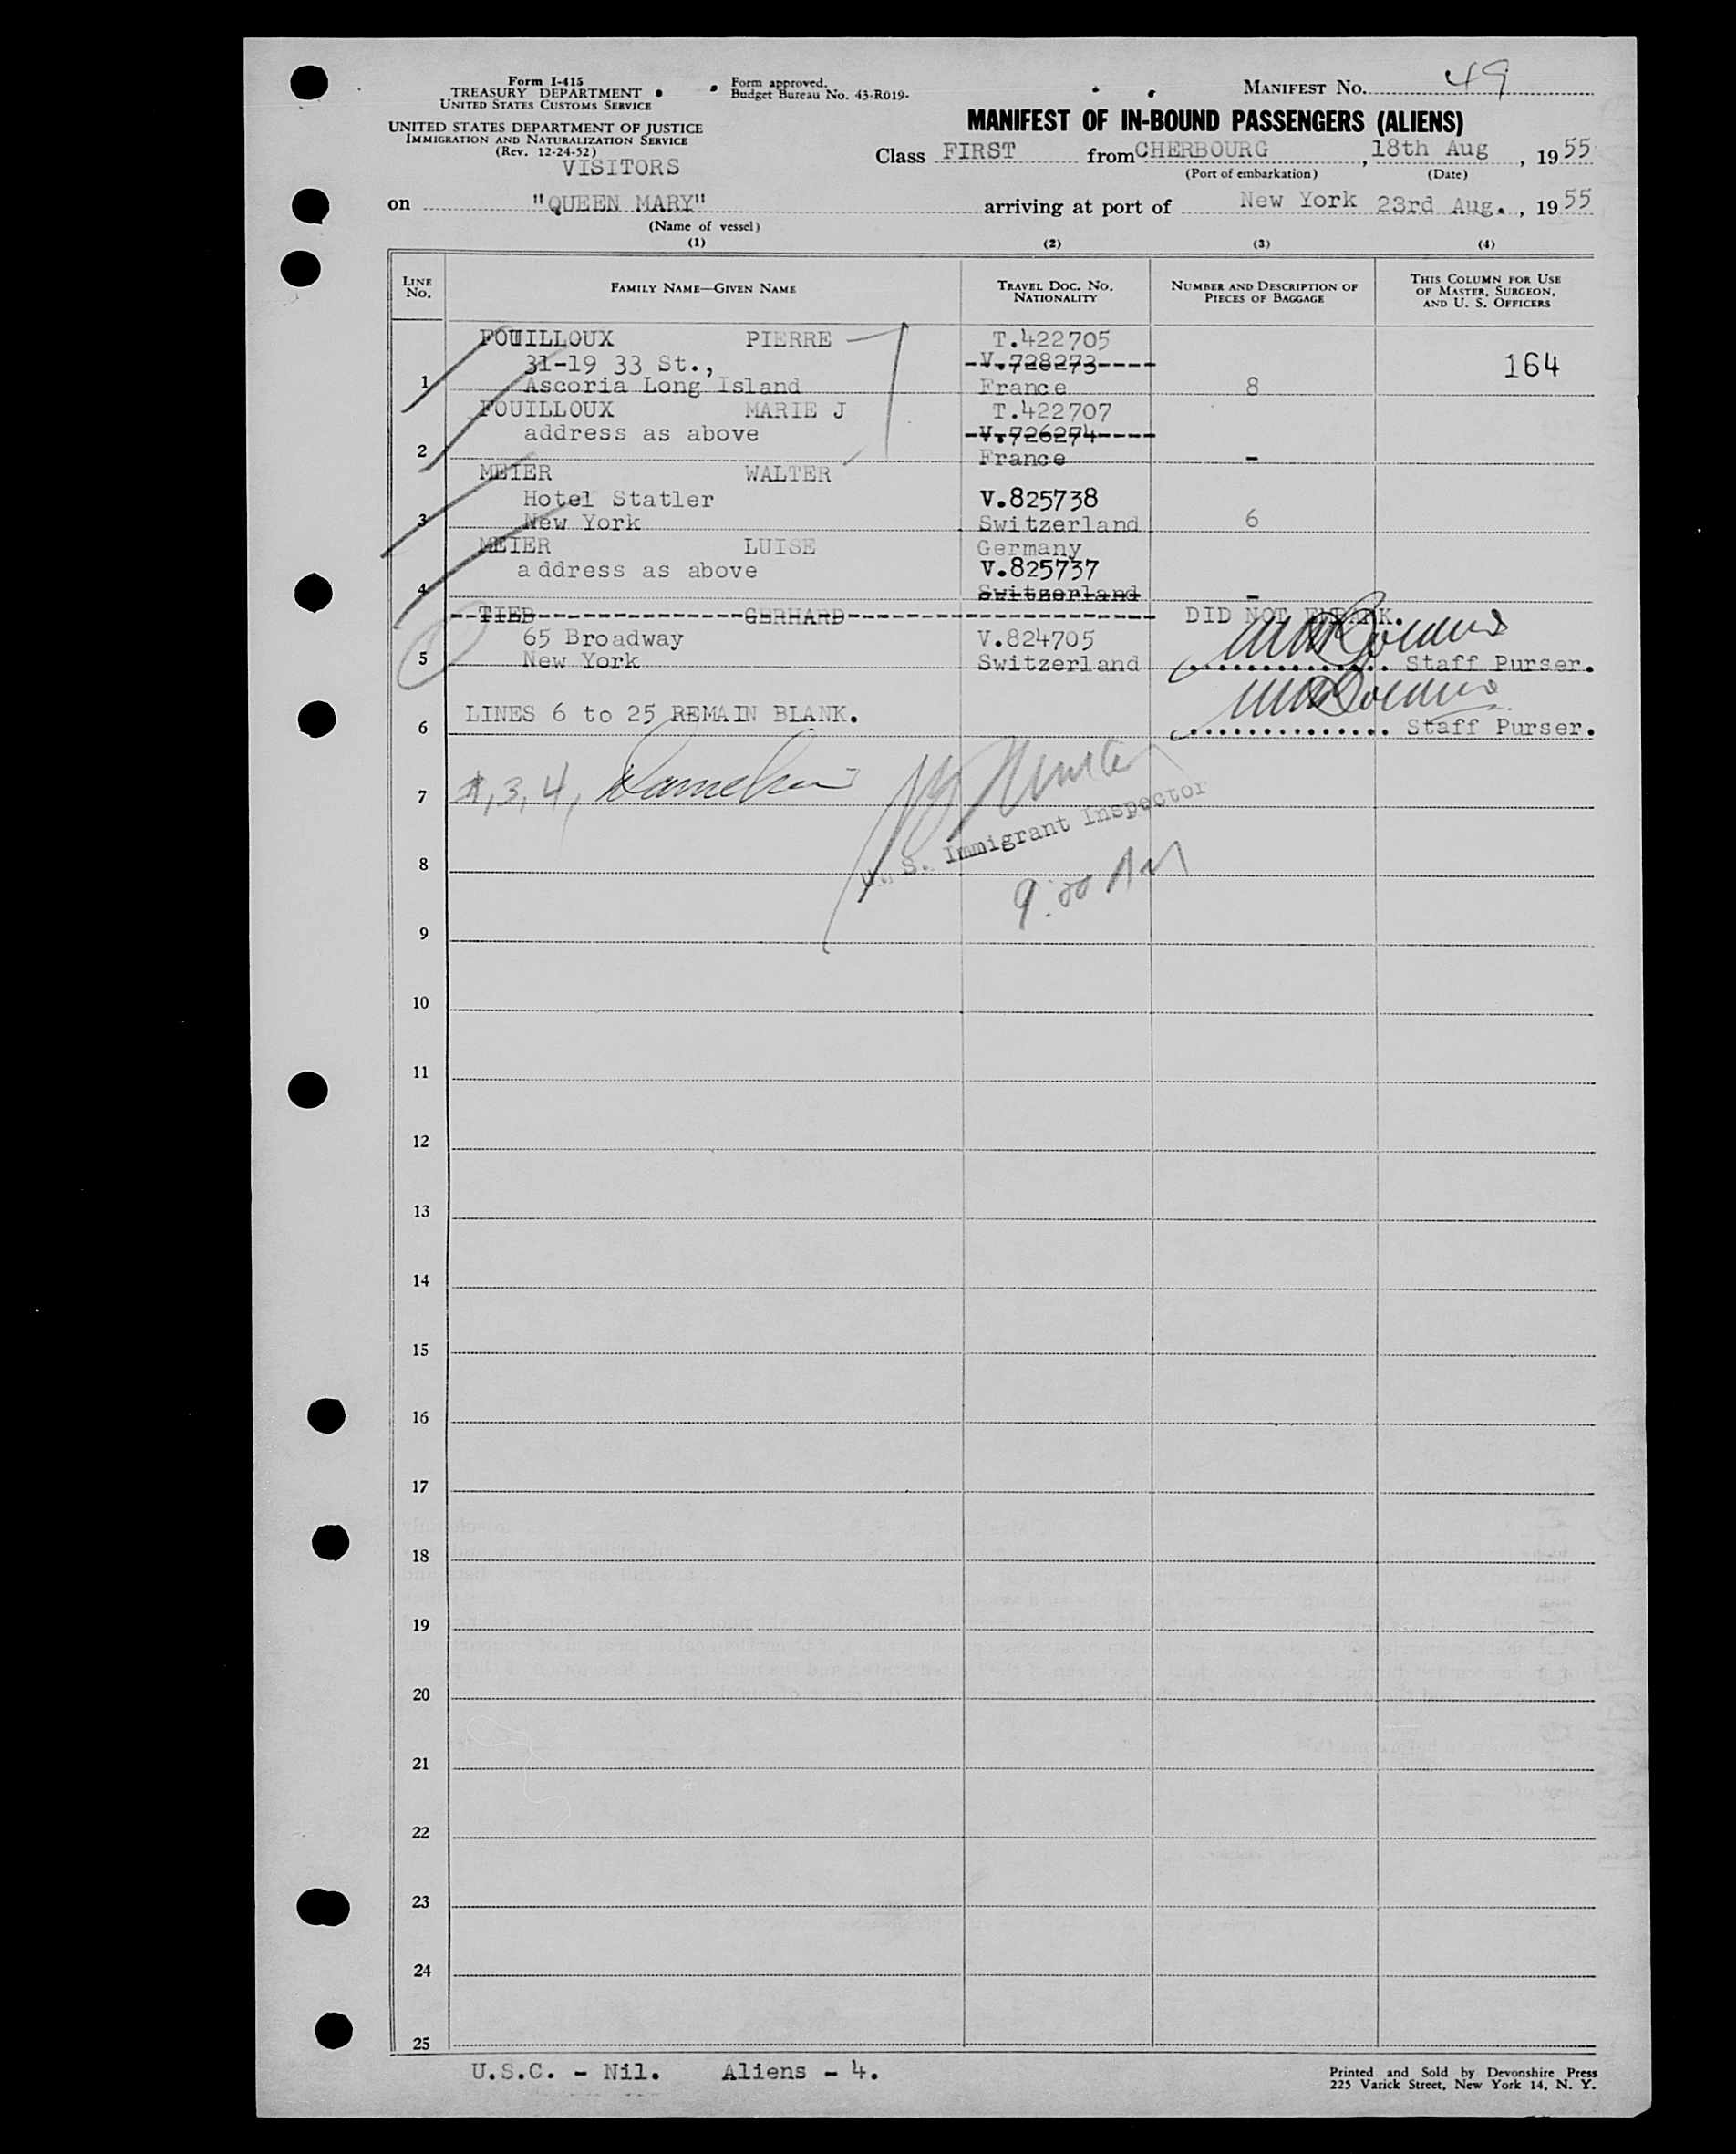 Form I-415
TREASURY DEPARTMENT
UNITED STATES CUSTOMS SERVICE
Form approved.
Budget Bureau No. 43-R019-
MANIFEST No. 49
UNITED STATES DEPARTMENT OF JUSTICE
IMMIGRATION AND NATURALIZATION SERVICE
(Rev. 12-24-52)
VISITORS
MANIFEST OF IN-BOUND PASSENGERS (ALIENS)
Class FIRST from CHERBOURG, 18th Aug, 1955
(Port of embarkation) (Date)
on "QUEEN MARY" arriving at port of New York 23rd Aug., 1955
(Name of vessel)
(1) (2) (3) (4)
LINE No. FAMILY NAME—GIVEN NAME TRAVEL DOC. No. NATIONALITY NUMBER AND DESCRIPTION OF PIECES OF BAGGAGE THIS COLUMN FOR USE OF MASTER, SURGEON, AND U. S. OFFICERS
FOUILLOUX PIERRE T.422705
31-19 33 St., V.728273 164
1 Ascoria Long Island France 8
FOUILLOUX MARIE J T.422707
address as above V.726274
2 France -
MEIER WALTER
Hotel Statler V.825738
3 New York Switzerland 6
MEIER LUISE Germany
address as above V.825737
4 Switzerland -
TIED GERHARD DID NOT EMBARK.
65 Broadway V.824705
5 New York Switzerland Staff Purser.
LINES 6 to 25 REMAIN BLANK.
6 Staff Purser.
7 3, 4,
U. S. Immigrant Inspector
8
9:00 AM
9
10
11
12
13
14
15
16
17
18
19
20
21
22
23
24
25
U.S.C. - Nil. Aliens - 4.
Printed and Sold by Devonshire Press
225 Varick Street, New York 14, N. Y.